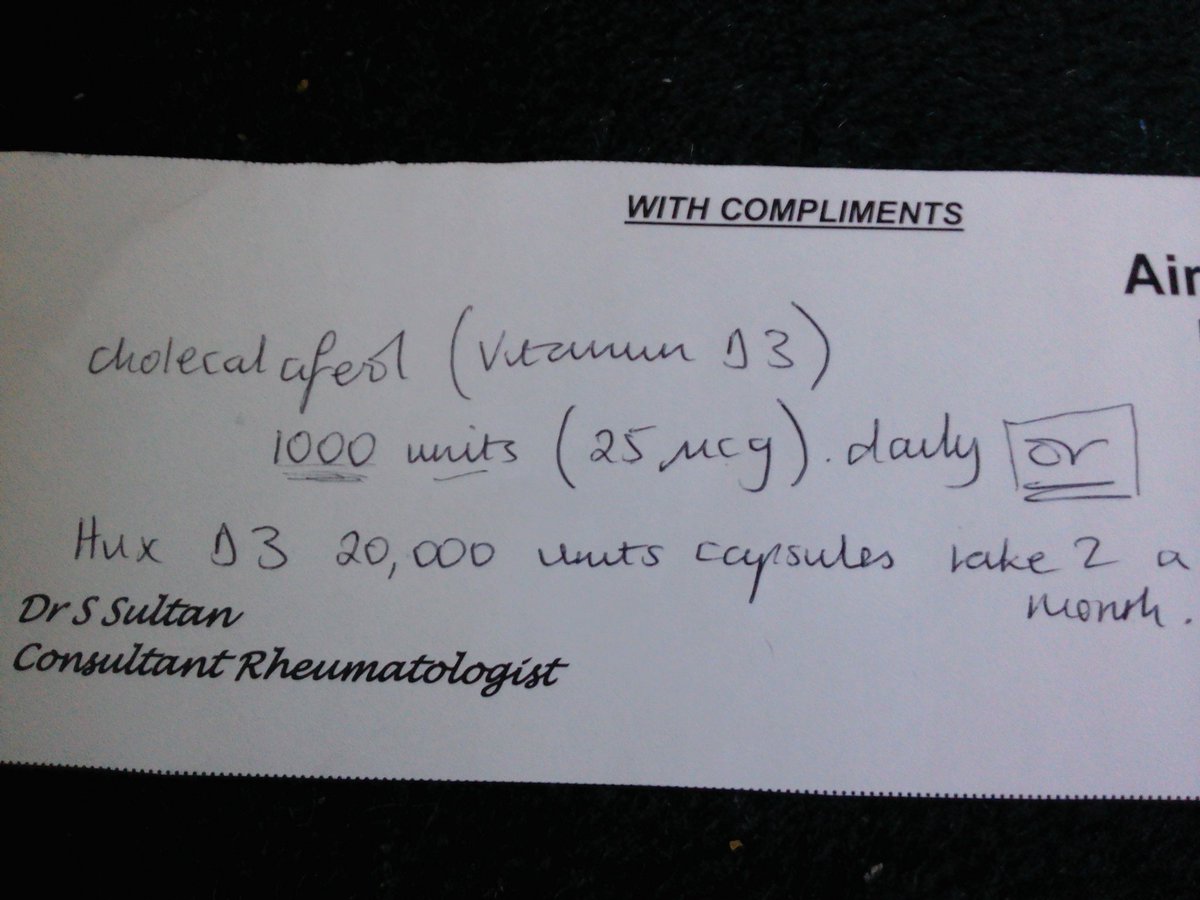 WITH COMPLIMENTS
Air
cholecalciferol (Vitamin D3)
1000 units (25 mcg). daily or
Hux D3 20,000 units capsules take 2 a
month.
Dr S Sultan
Consultant Rheumatologist